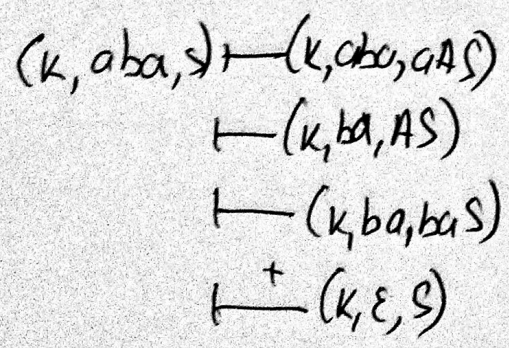 (K, aba, S) ⊢ (K, aba, aAS)
⊢ (K, ba, AS)
⊢ (K, ba, baS)
⊢⁺ (K, ε, S)